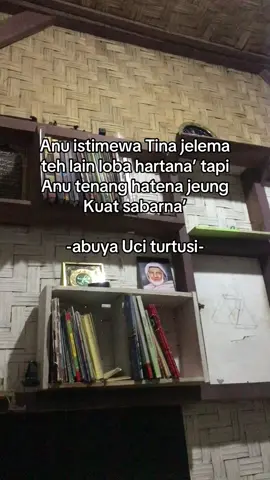 Anu istimewa Tina jelema
teh lain loba hartana’ tapi
Anu tenang hatena jeung
Kuat sabarna’
-abuya Uci turtusi-